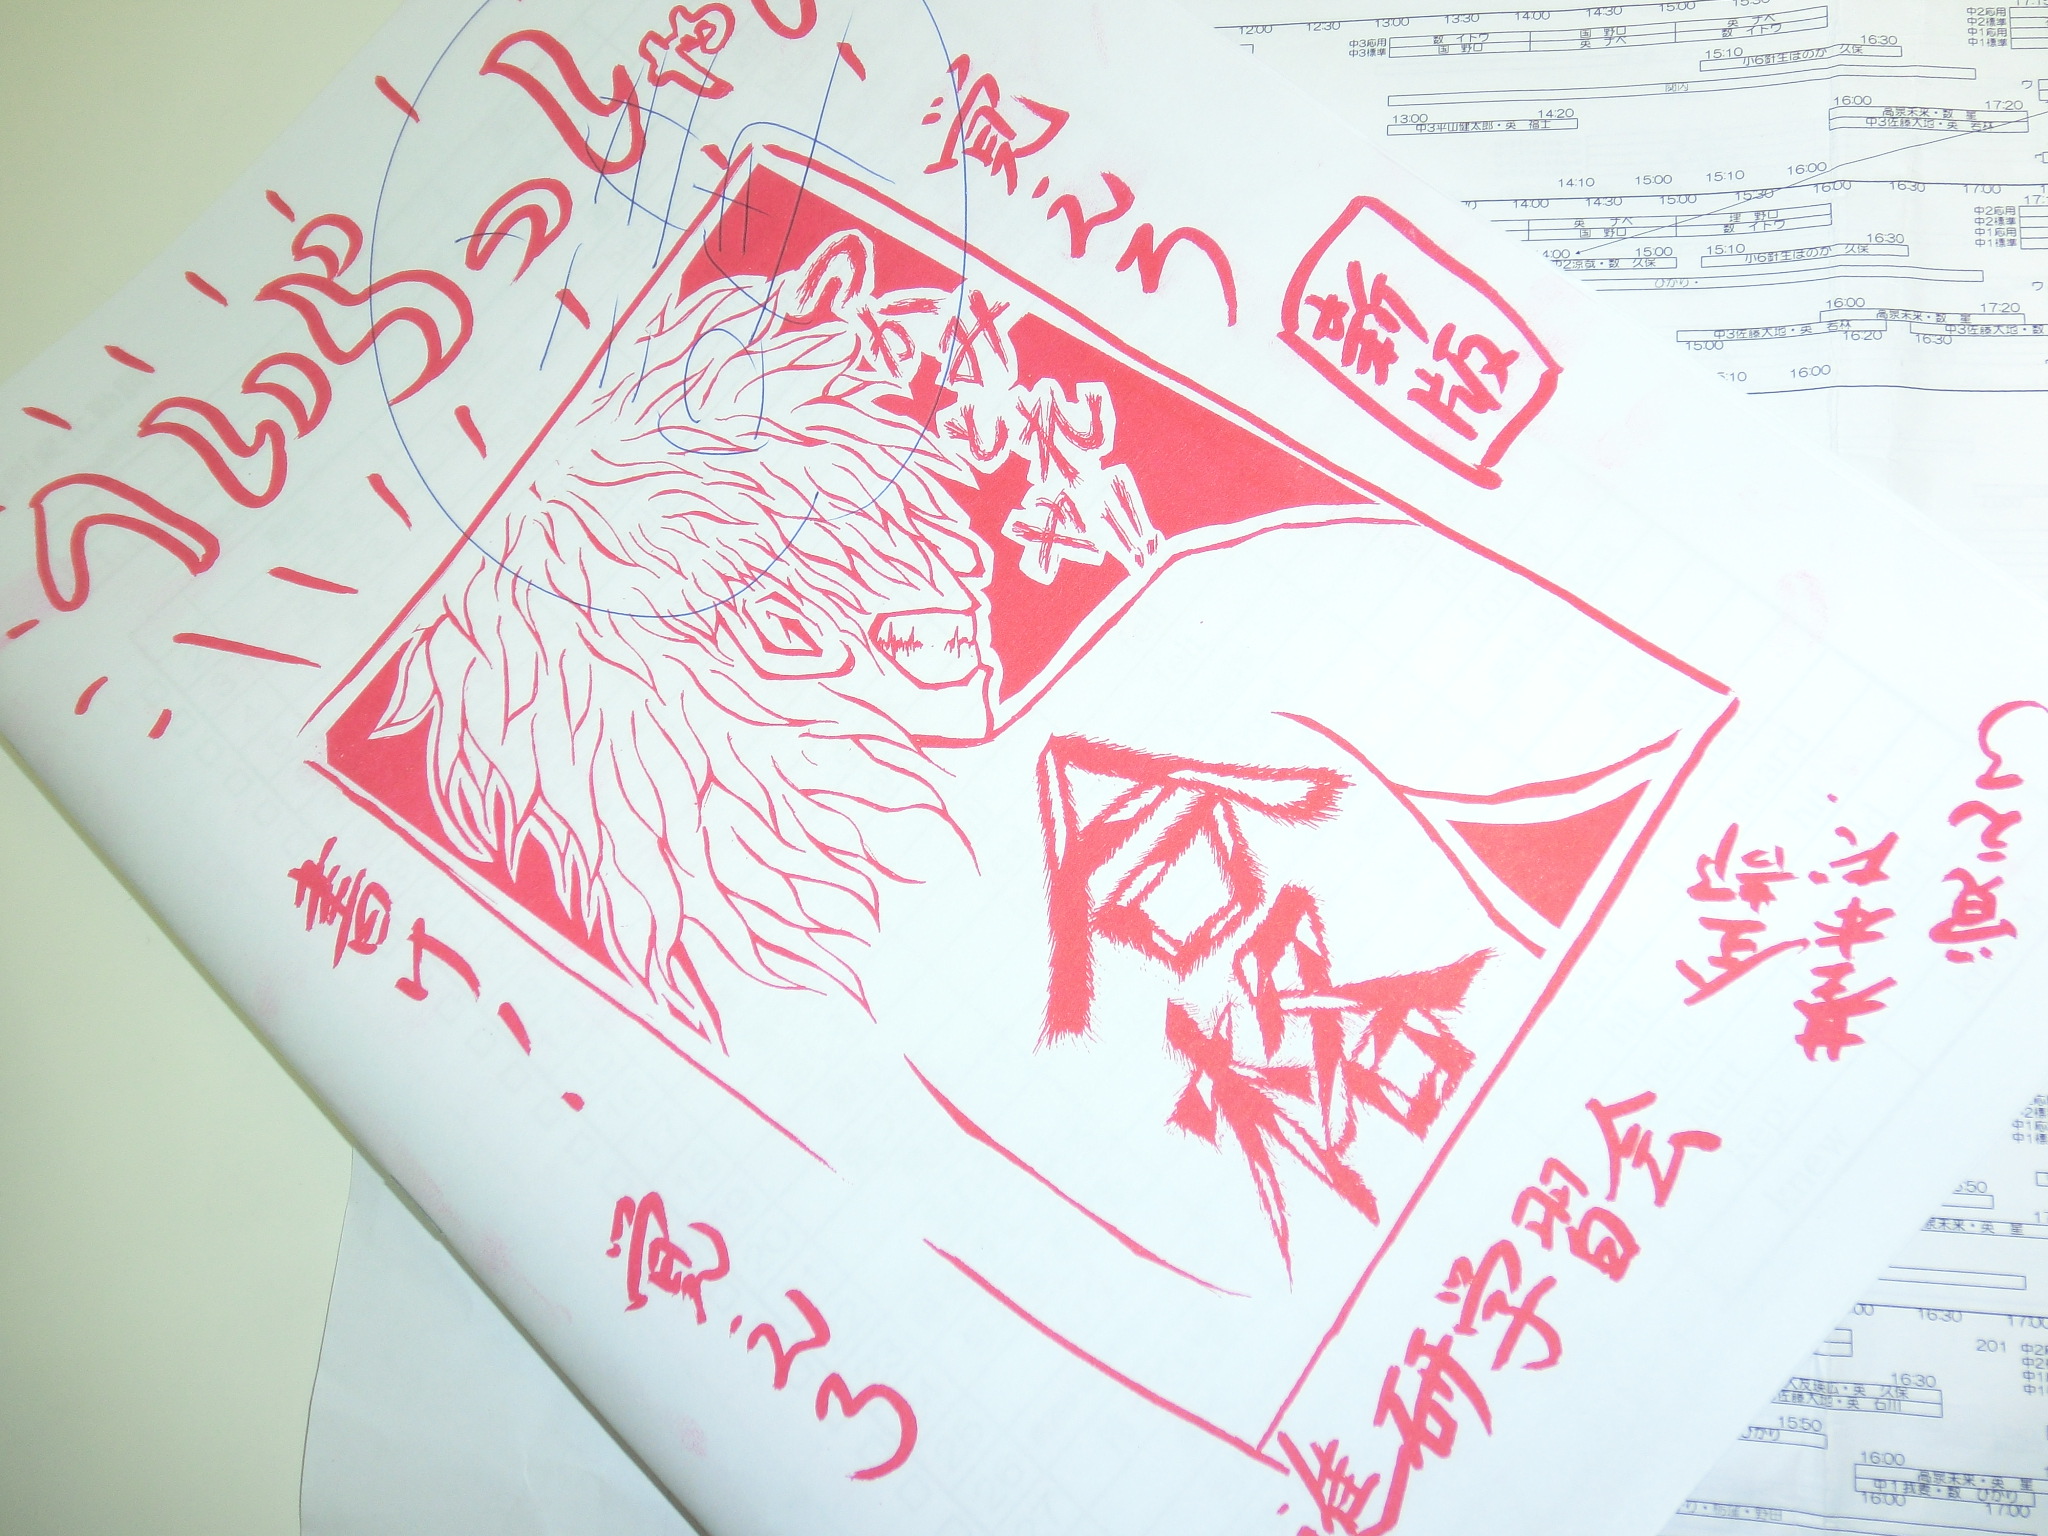 へいらっしゃい
覚えろ
新版
つかみ
とれ
や!!
合格
春ワー
覚えろ
全部
基本だ.
覚えろ
進研学習会
12:00 12:30 13:00 13:30 14:00 14:30 15:00 15:30
中3応用 数 イトウ 国 野口 英 ナベ
中3標準 国 野口 英 ナベ 数 イトウ
中2応用
中2標準
中1応用
中1標準
15:10 16:30
小6針生ほのか 久保
関内
13:00 14:20
中3平山健太郎・英 福士
16:00 17:20
高泉未来・数 星
中3佐藤大地・英 若林
14:10 15:00 15:10 16:00
14:00 14:30 15:00 15:30 16:00 16:30 17:00
英 ナベ 理 野口
国 野口 数 イトウ
中2応用
中2標準
中1応用
中1標準
15:00 15:10 16:30
小6針生ほのか 久保
16:00 17:20
高泉未来・数 星
中3佐藤大地・英 若林 中3佐藤大地・数
15:00 16:20 16:30
16:00
16:30 17:00
201
16:30
佐藤大地・英 石川
15:50
16:00
高泉未来・英 星
16:00 17:00